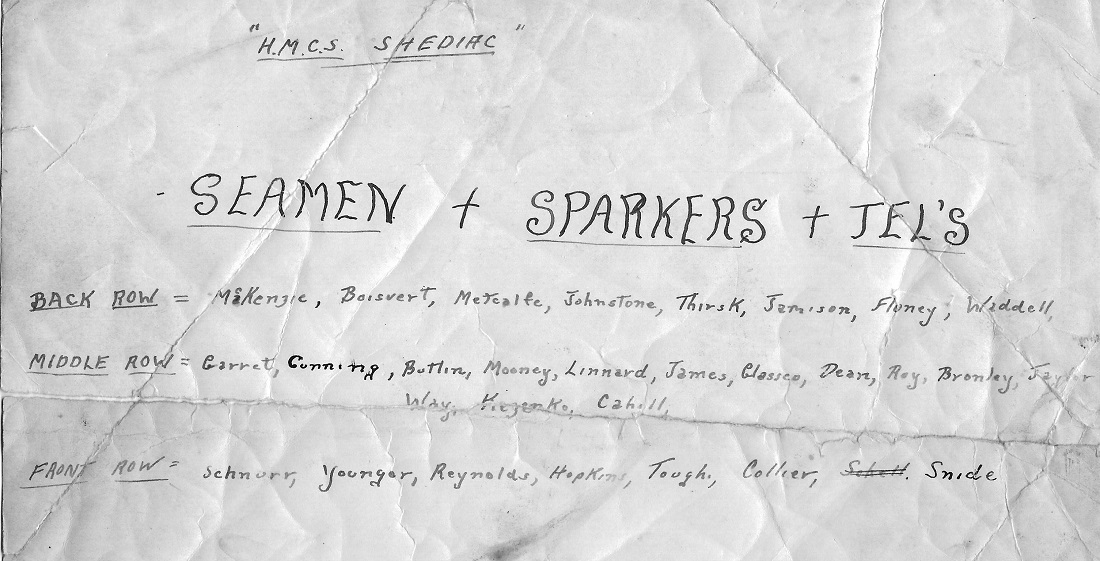 "H.M.C.S. SHEDIAC"
- SEAMEN + SPARKERS + TEL'S
BACK ROW = McKenzie, Boisvert, Metcalfe, Johnstone, Thirsk, Jamison, Fluney, Waddell,
MIDDLE ROW = Garret, Gunning, Butlin, Mooney, Linnard, James, Glassco, Dean, Roy, Bromley, Taylor
Way, Cahill,
FRONT ROW = Schnurr, Younger, Reynolds, Hopkins, Tough, Collier, Snide